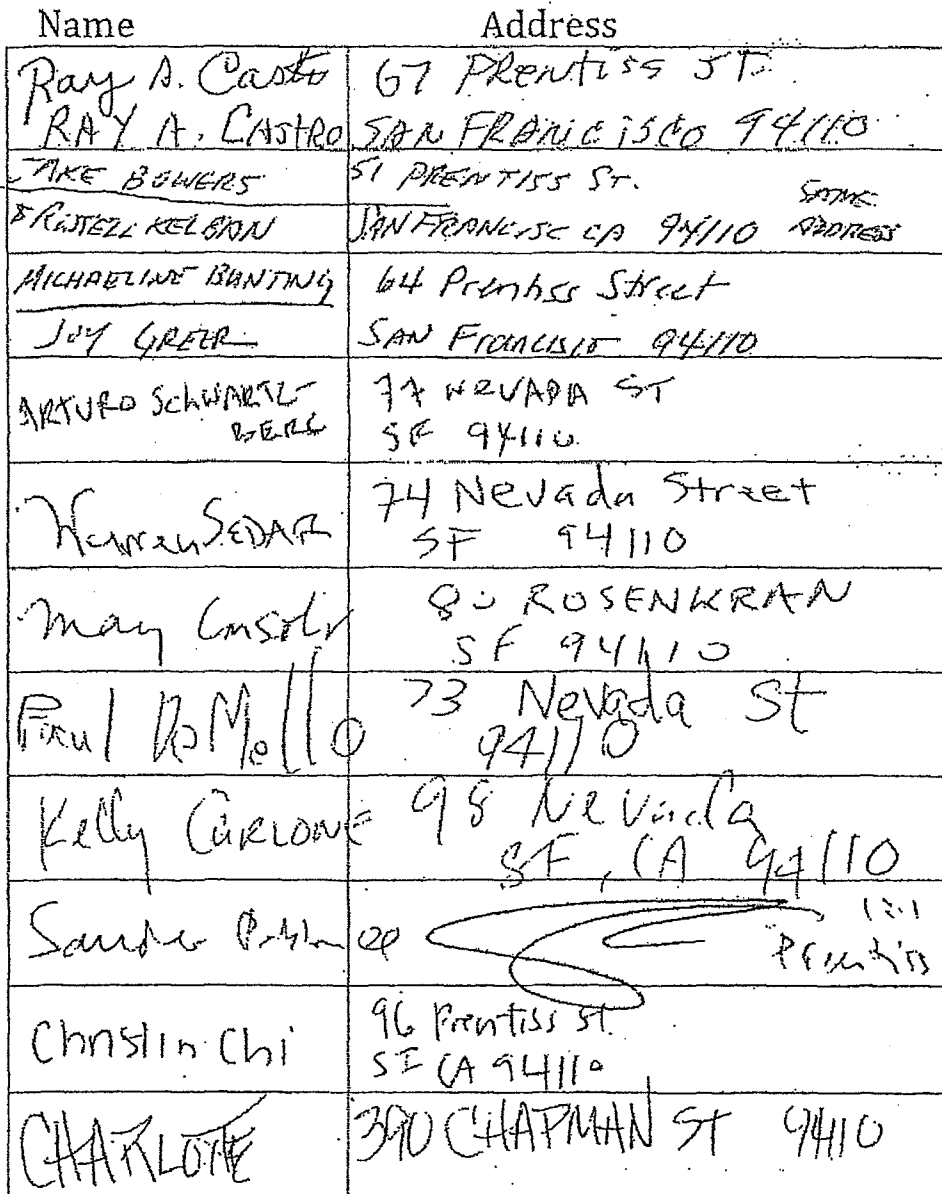 Name Address
Ray A. Castro 67 PRENTISS ST.
RAY A. CASTRO SAN FRANCISCO 94110
JAKE BOWERS 51 PRENTISS ST.
& RUSSELL KELBAN SAN FRANCISC CA 94110 SAME ADDRESS
MICHAELINE BUNTING 64 Prentiss Street
JOY GREER SAN Francisco 94110
ARTURO SCHWARTZ- 77 NEVADA ST
BERG SF 94110
Warren SEDAR 74 Nevada Street
SF 94110
80 ROSENKRAN
SF 94110
Paul DeMello 73 Nevada St
94110
Kelly CARLONE 98 Nevada
SF, CA 94110
Prentiss
Christin Chi 96 Prentiss St.
SF CA 94110
CHARLOTTE 390 CHAPMAN ST 9410